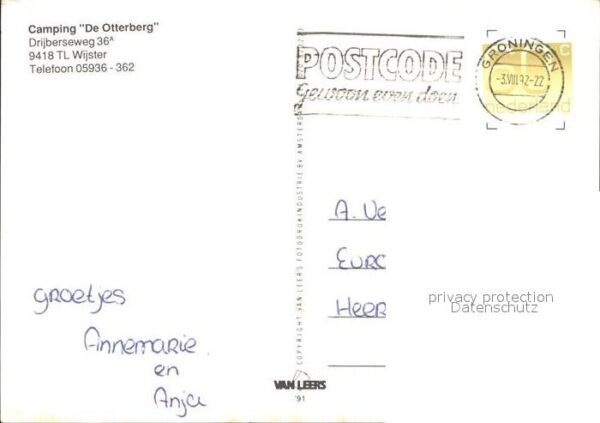 Camping "De Otterberg"
Drijberseweg 36ᴬ
9418 TL Wijster
Telefoon 05936 - 362
POSTCODE
gewoon even doen
GRONINGEN
-3.VIII.92-22
c
nederland
COPYRIGHT VAN LEERS FOTODRUKINDUSTRIE BV AMSTERDAM
A. Ve
Euro
Heer
privacy protection
Datenschutz
groetjes
Annemarie
en
Anja
VAN LEERS
'91